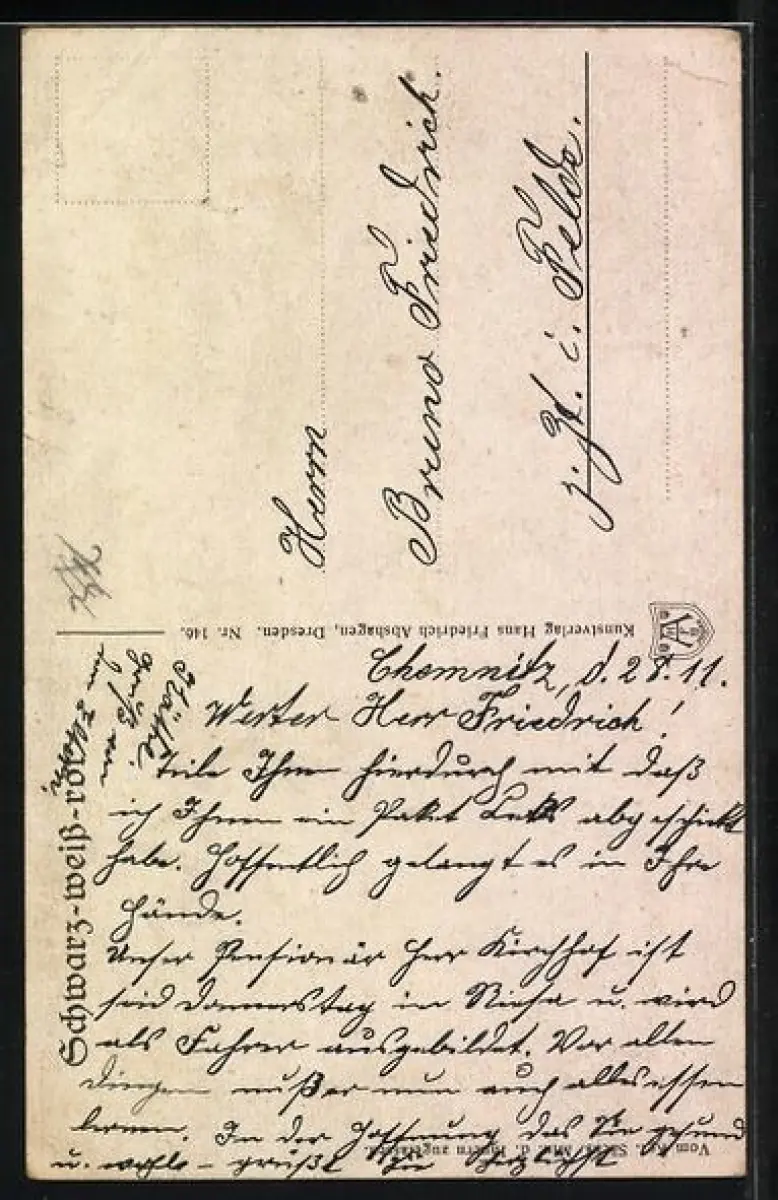 Herrn
Bruno Friedrich.
z. Zt. i. Felde.
Kunstverlag Hans Friedrich Abshagen, Dresden. Nr. 146.
Schwarz-weiß-rot
Chemnitz, d. 28.11.
Werter Herr Friedrich!
Teile Ihnen hierdurch mit daß
ich Ihnen ein Paket abgeschickt
habe. Hoffentlich gelangt es in Ihre
Hände.
Unser Pensionär Herr Kirchhof ist
seid Donnerstag in Riesa u. wird
als Fahrer ausgebildet. Vor allen
Dingen muß er nun auch alles essen
lernen. In der Hoffnung das Sie gesund
u. wohl – grüßt Sie herzlichst
Käthe.
Gruß von